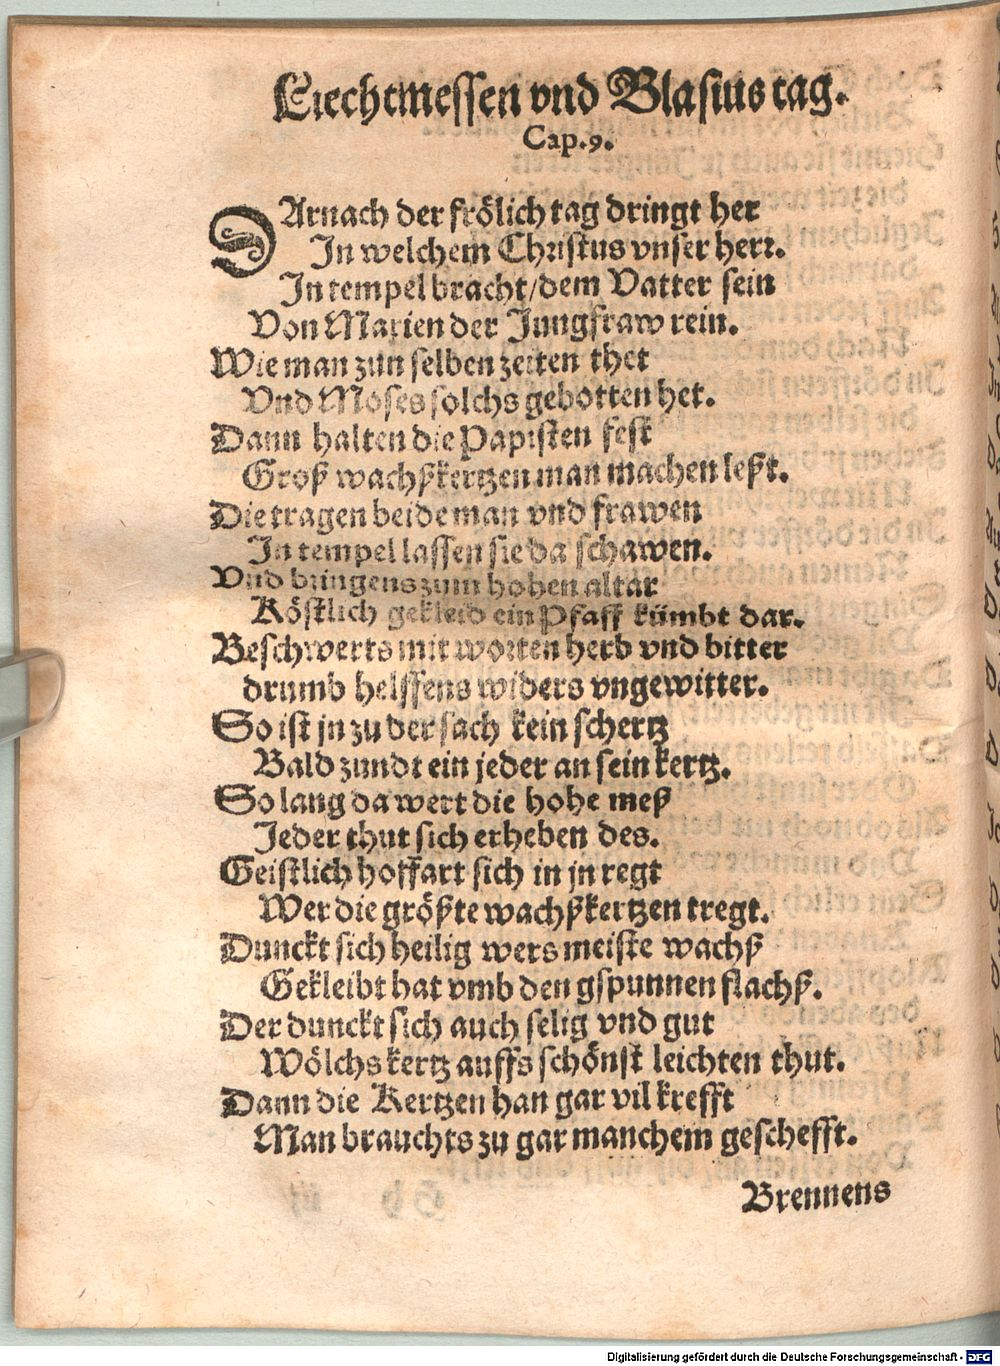 Liechtmessen vnd Blasius tag.
Cap. 9.
DArnach der frölich tag dringt her
In welchem Christus vnser herr.
In tempel bracht/dem Vatter sein
Von Marien der Jungfraw rein.
Wie man zün selben zeiten thet
Vnd Moses solchs gebotten het.
Dann halten die Papisten fest
Groß wachßkertzen man machen leßt.
Die tragen beide man vnd frawen
In tempel lassen sie da schawen.
Vnd bringens zum hohen altar
Köstlich gekleid ein Pfaff kümbt dar.
Beschwerts mit worten herb vnd bitter
drumb helffens widers vngewitter.
So ist jn zu der sach kein schertz
Bald zundt ein jeder an sein kertz.
So lang da wert die hohe meß
Jeder thut sich erheben des.
Geistlich hoffart sich in jn regt
Wer die größte wachßkertzen tregt.
Dunckt sich heilig wers meiste wachß
Gekleibt hat vmb den gspunnen flachß.
Der dunckt sich auch selig vnd gut
Wölchs kertz auffs schönst leichten thut.
Dann die Kertzen han gar vil krefft
Man brauchts zu gar manchem geschefft.
Brennens
Digitalisierung gefördert durch die Deutsche Forschungsgemeinschaft - DFG